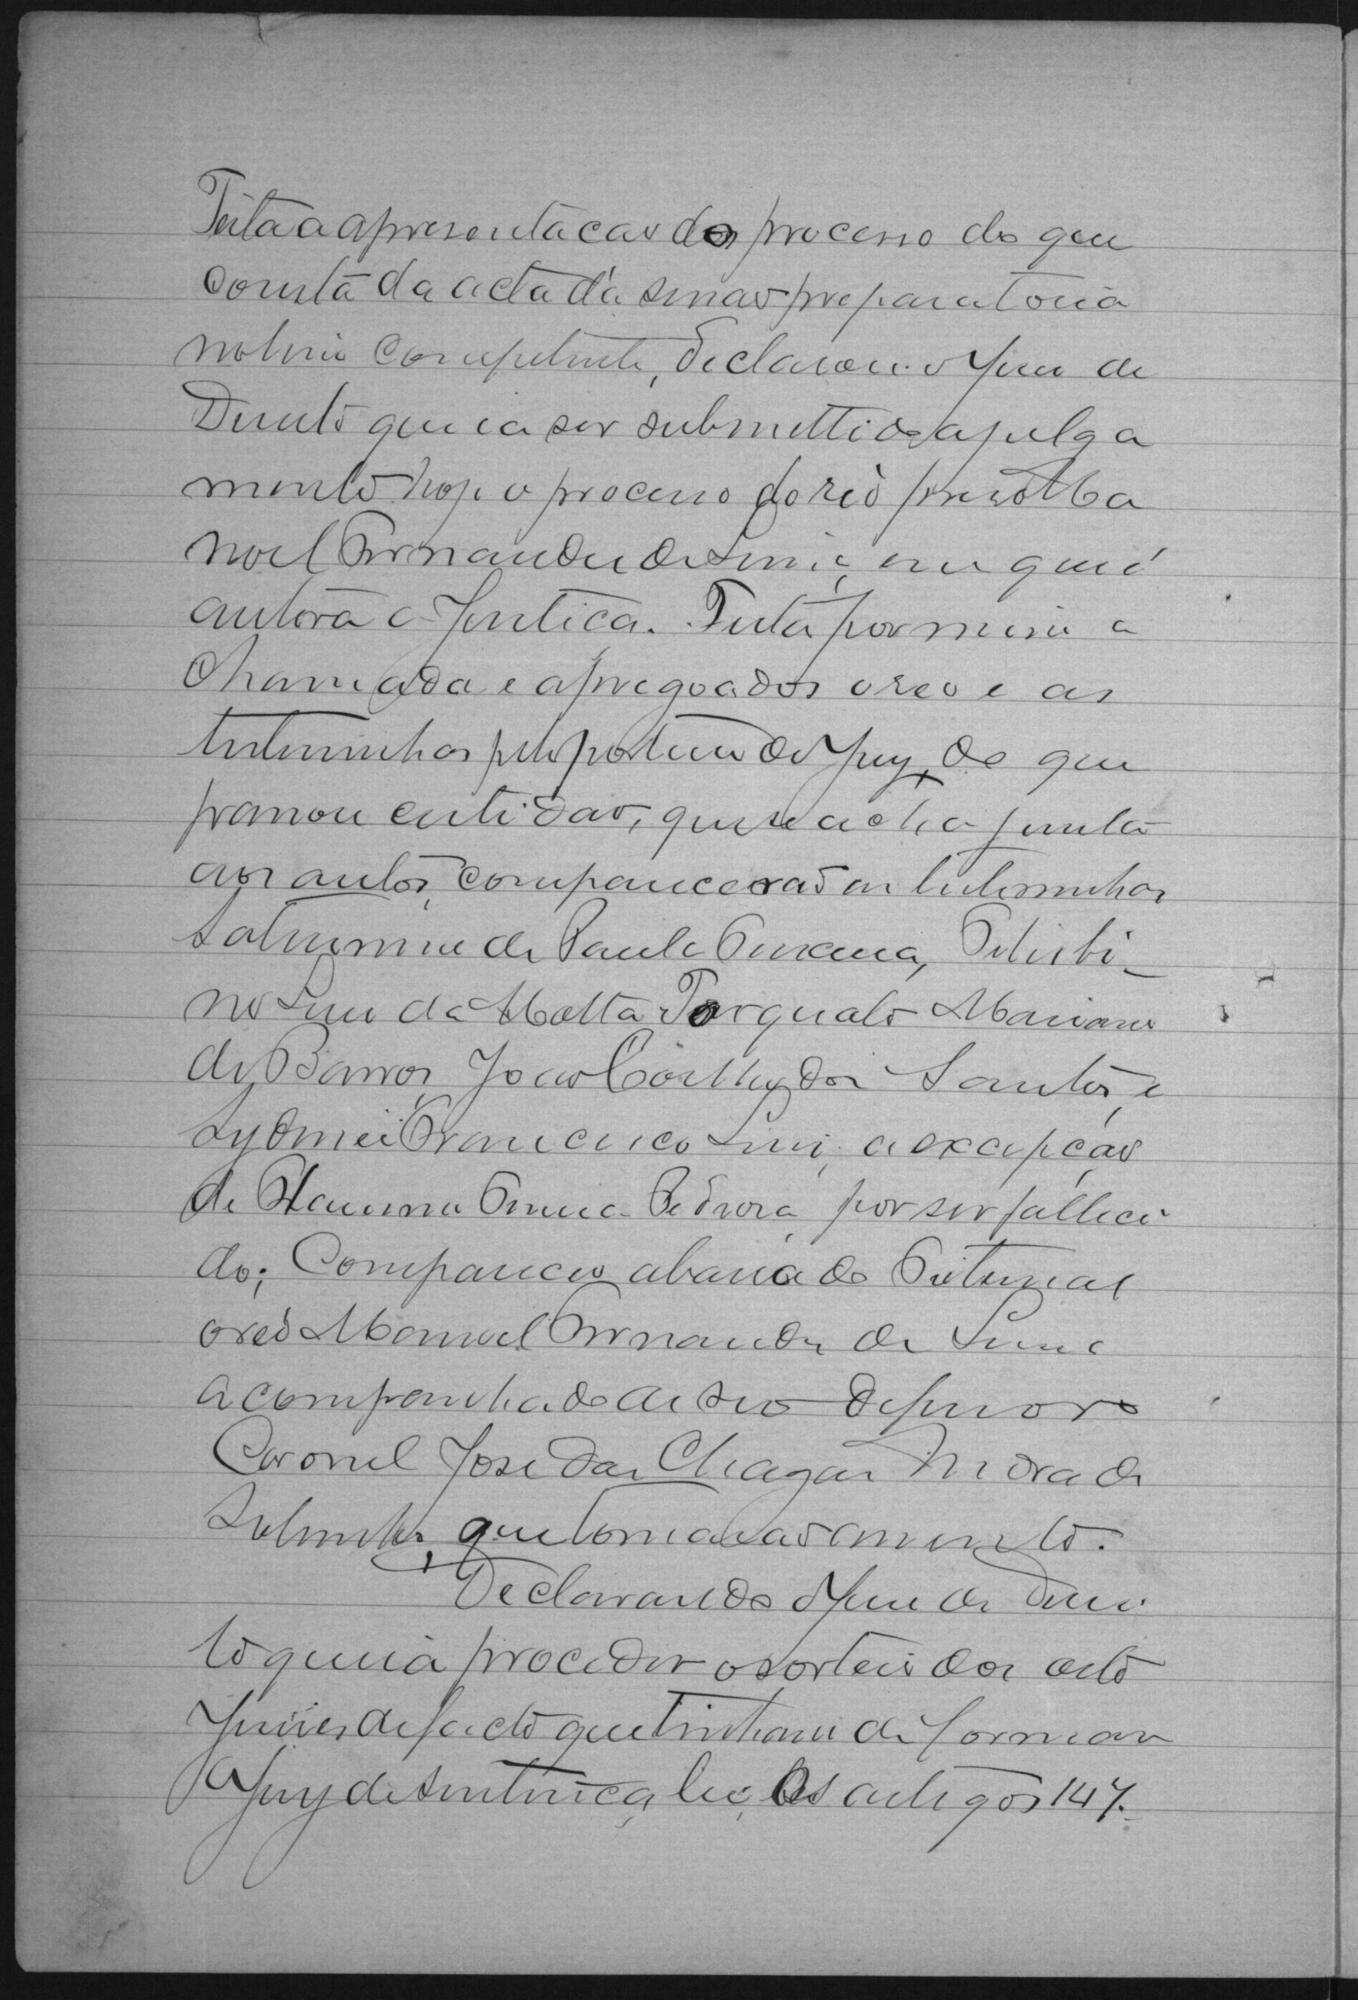 Feita a apresentacão do processo do que
consta da acta da sessão preparatoria
no livro competente, declarou o Juiz de
Direito que ia ser submettido a julga
mento hoje o processo do réo preso Ma
noel Fernandes de Lima, em que é
autora a Justiça. Feita por mim a
chamada e apregoados o reo e as
testemunhas pelo porteiro do Jury, do que
passou certidão, que se acha junta
aos autos, comparecerão as testemunhas
Saturnino de Paula
no da Motta Torquato Mariano
de Barros, João Coelho dos Santos, e
Sydnei Francisco Lins, a excepção
de Pedrosa, por ser falleci
do; Compareceu a barra do Tribunal
o réo Manoel Fernandes de Lima
acompanhado de seo defensor o
Coronel José das Chagas
que tomava assento.
Declarando o Juiz de Direi
to que ia proceder o sorteio dos oito
Juizes de facto que tinham de formar
o Jury de sentença, leo, os artigos 147.